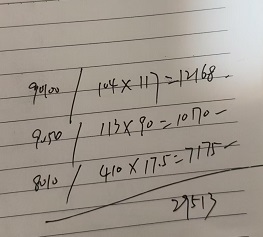 90100 / 104 × 117 = 12168
9050 / 113 × 90 = 1070
8010 / 410 × 17.5 = 7175
29513